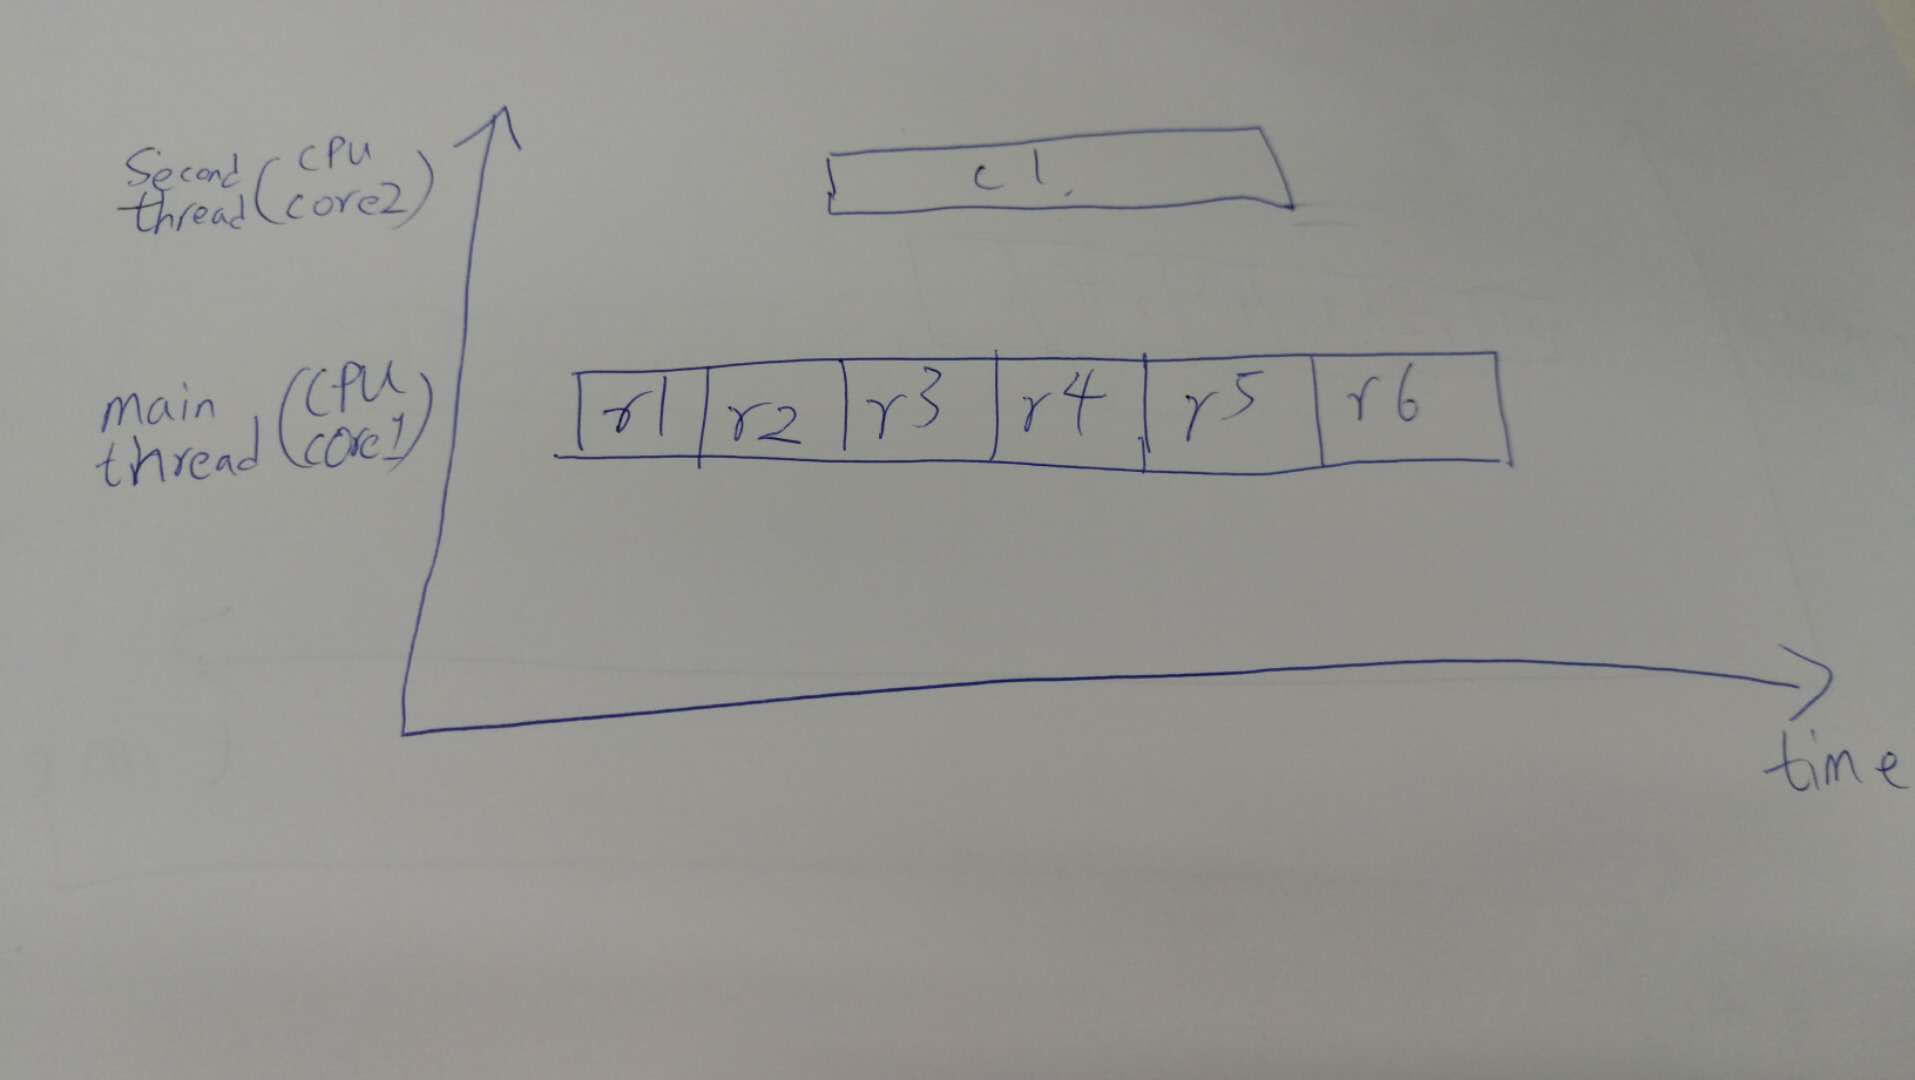 Second thread (CPU core2)
c1.
main thread (CPU core1)
r1 r2 r3 r4 r5 r6
time